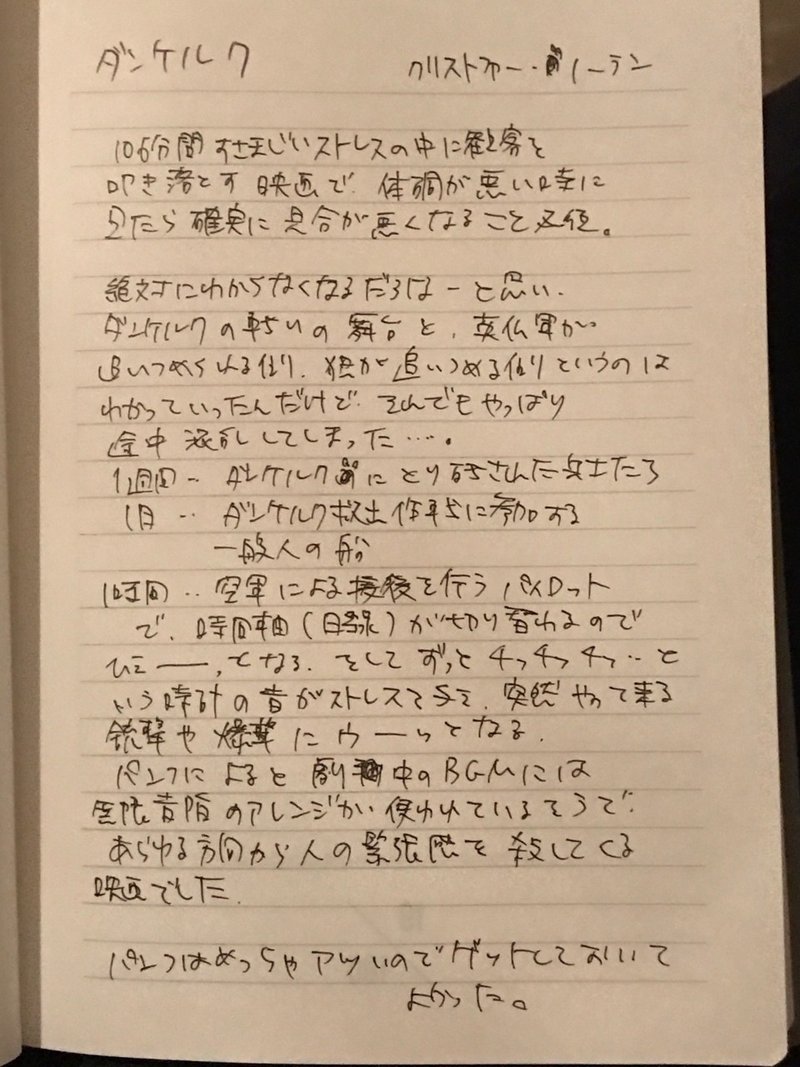 ダンケルク クリストファー・ノーラン
106分間すさまじいストレスの中に観客を
叩き落とす映画で、体調が悪い時に
見たら確実に具合が悪くなること必至。
絶対にわからなくなるだろなーと思い、
ダンケルクの戦いの舞台と、英仏軍が
追いつめられる側り、独が追いつめる側りというのは
わかっていったんだけど、それでもやっぱり
途中混乱してしまった…。
1週間‥ダンケルクにとり残さんた兵士たち
1日‥ダンケルク救出作戦に参加する
一般人の船
1時間‥空軍による援護を行うパイロット
で、時間軸(目線)が切り替わるので
ひえーっ、となる。そしてずっとチッチッチッ‥と
いう時計の音がストレスで、突然やって来る
銃撃や爆撃にウーッとなる。
パンフによると劇中のBGMには
無限音階のアレンジが使われているそうで、
あらゆる方向から人の緊張感を殺してくる
映画でした。
パンフはめっちゃアツいのでゲットしておいて
よかった。